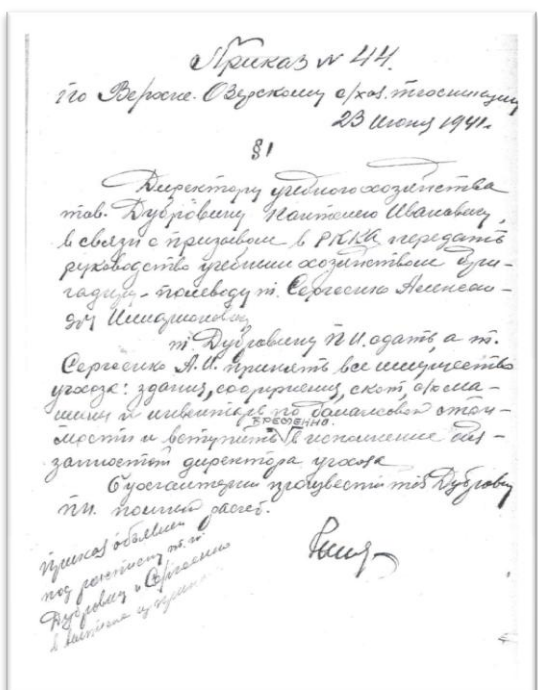 Приказ № 44.
по Верхне-Озерскому с/хоз. техникуму
23 июня 1941 г.
§1
Директору учебного хозяйства
тов. Дубровину Пантелею Ивановичу,
в связи с призывом в РККА передать
руководство учебным хозяйством бри-
гадиру-полеводу т. Сергеенко Алексан-
дру
т. Дубровину П.И. сдать, а т.
Сергеенко А.И. принять все имущество
учхоза: здания, сооружения, скот, с/хма-
шины и инвентарь по балансовой стои-
ВРЕМЕННО.
мости и вступить V в исполнение обя-
занностей директора учхоза
Бухгалтерии произвести тов Дубровину
П.И. полный расчет.
Приказ объявить
под расписку т.т.
Дубровину и Сергеенко